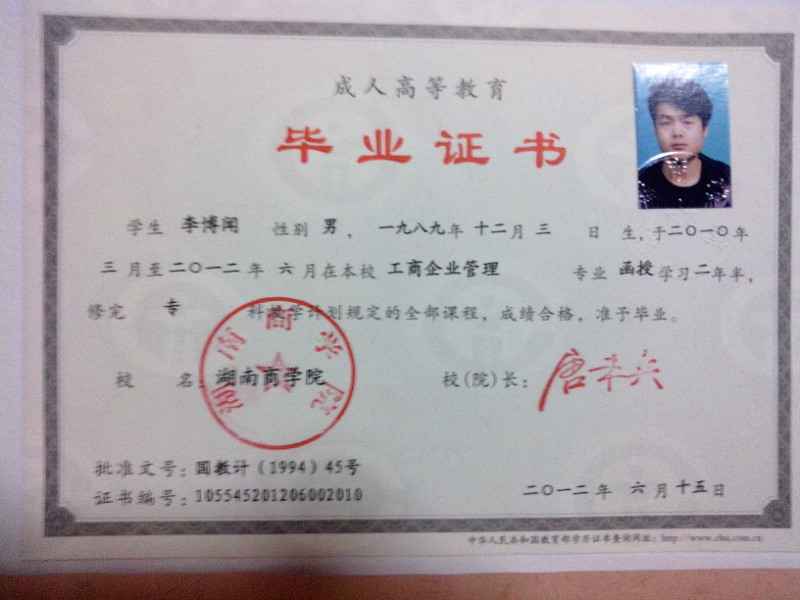 成人高等教育
毕业证书
学生 李博闻 性别 男，一九八九年 十二月 三 日 生，于二〇一〇年
三 月至二〇一二年 六月在本校 工商企业管理 专业 函授学习二年半，
修完 专 科教学计划规定的全部课程，成绩合格，准予毕业。
校 名：湖南商学院 校(院)长：唐未兵
湖南商学院
批准文号：国教计（1994）45号
证书编号：105545201206002010 二〇一二年 六月十五日
中华人民共和国教育部学历证书查询网址：http://www.chsi.com.cn